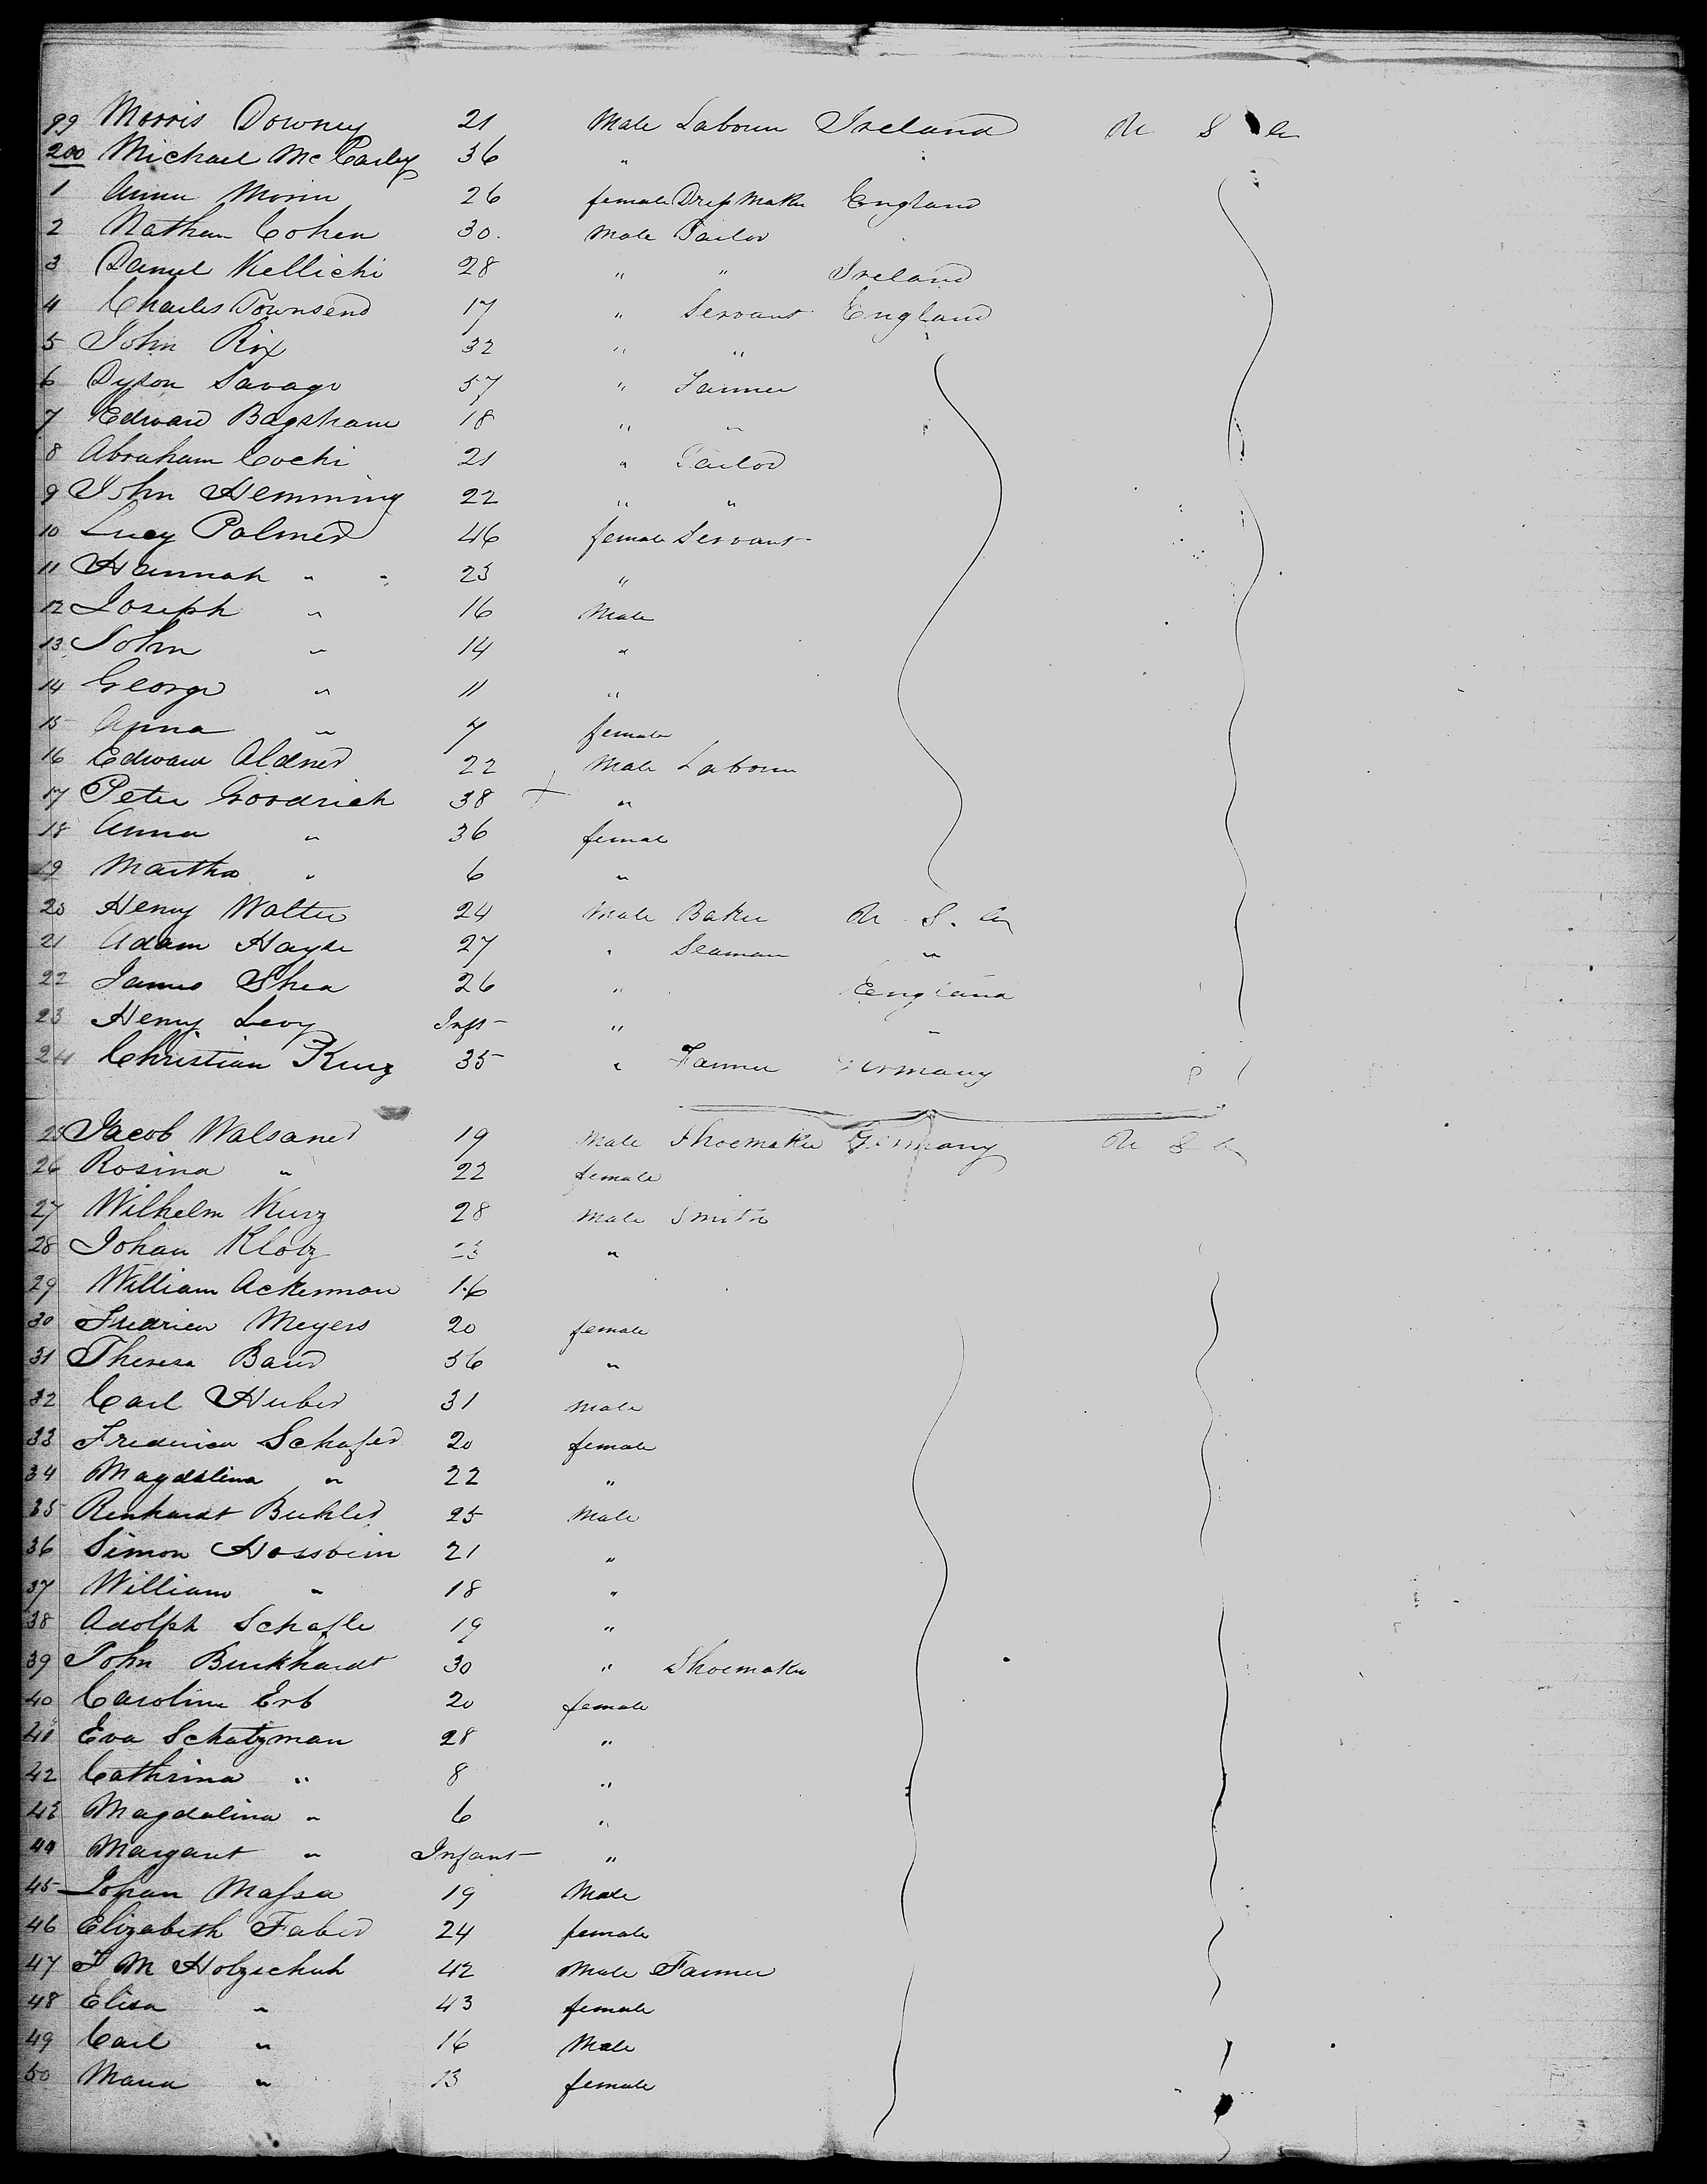 99 Morris Downey 21 Male Labourer Ireland U S A
200 Michael McCarley 36 "
1 Anna Morin 26 female Dress Maker England
2 Nathan Cohen 30. Male Tailor
3 Daniel Kellichi 28 " " Ireland
4 Charles Townsend 17 " Servant England
5 John Rix 32 " "
6 Dyson Savage 57 " Farmer
7 Edward Bagshaw 18 " "
8 Abraham Cochi 21 " Tailor
9 John Hemming 22 " "
10 Lucy Palmer 46 female Servant
11 Hannah " 23 "
12 Joseph " 16 Male
13 John " 14 "
14 George " 11 "
15 Anna " 7 female
16 Edward Aldner 22 Male Labour
17 Peter Goodrich 38 + "
18 Anna " 36 female
19 Martha " 6 "
20 Henry Walter 24 Male Baker U. S. A
21 Adam Hayde 27 " Seaman "
22 James Shea 26 " England
23 Henry Levy Inft " "
24 Christian Kurz 35 " Farmer Germany
25 Jacob Walsaner 19 Male Shoemaker Germany U S A
26 Rosina " 22 female
27 Wilhelm Kurz 28 Male Smith
28 Johan Klotz 23 "
29 William Ackerman 16
30 Fredrica Meyers 20 female
31 Theresa Baur 36 "
32 Carl Huber 31 Male
33 Frederica Schafer 20 female
34 Magdalina " 22 "
35 Renhardt Buhler 25 Male
36 Simon Hossbein 21 "
37 William " 18 "
38 Adolph Schafle 19 "
39 John Burkhardt 30 " Shoemaker
40 Caroline Erb 20 female
41 Eva Schatzman 28 "
42 Cathrina " 8 "
43 Magdalina " 6 "
44 Margaret " Infant "
45 Johan Massa 19 Male
46 Elizabeth Faber 24 female
47 J M Holzschuh 42 Male Farmer
48 Elisa " 43 female
49 Carl " 16 Male
50 Maria " 13 female